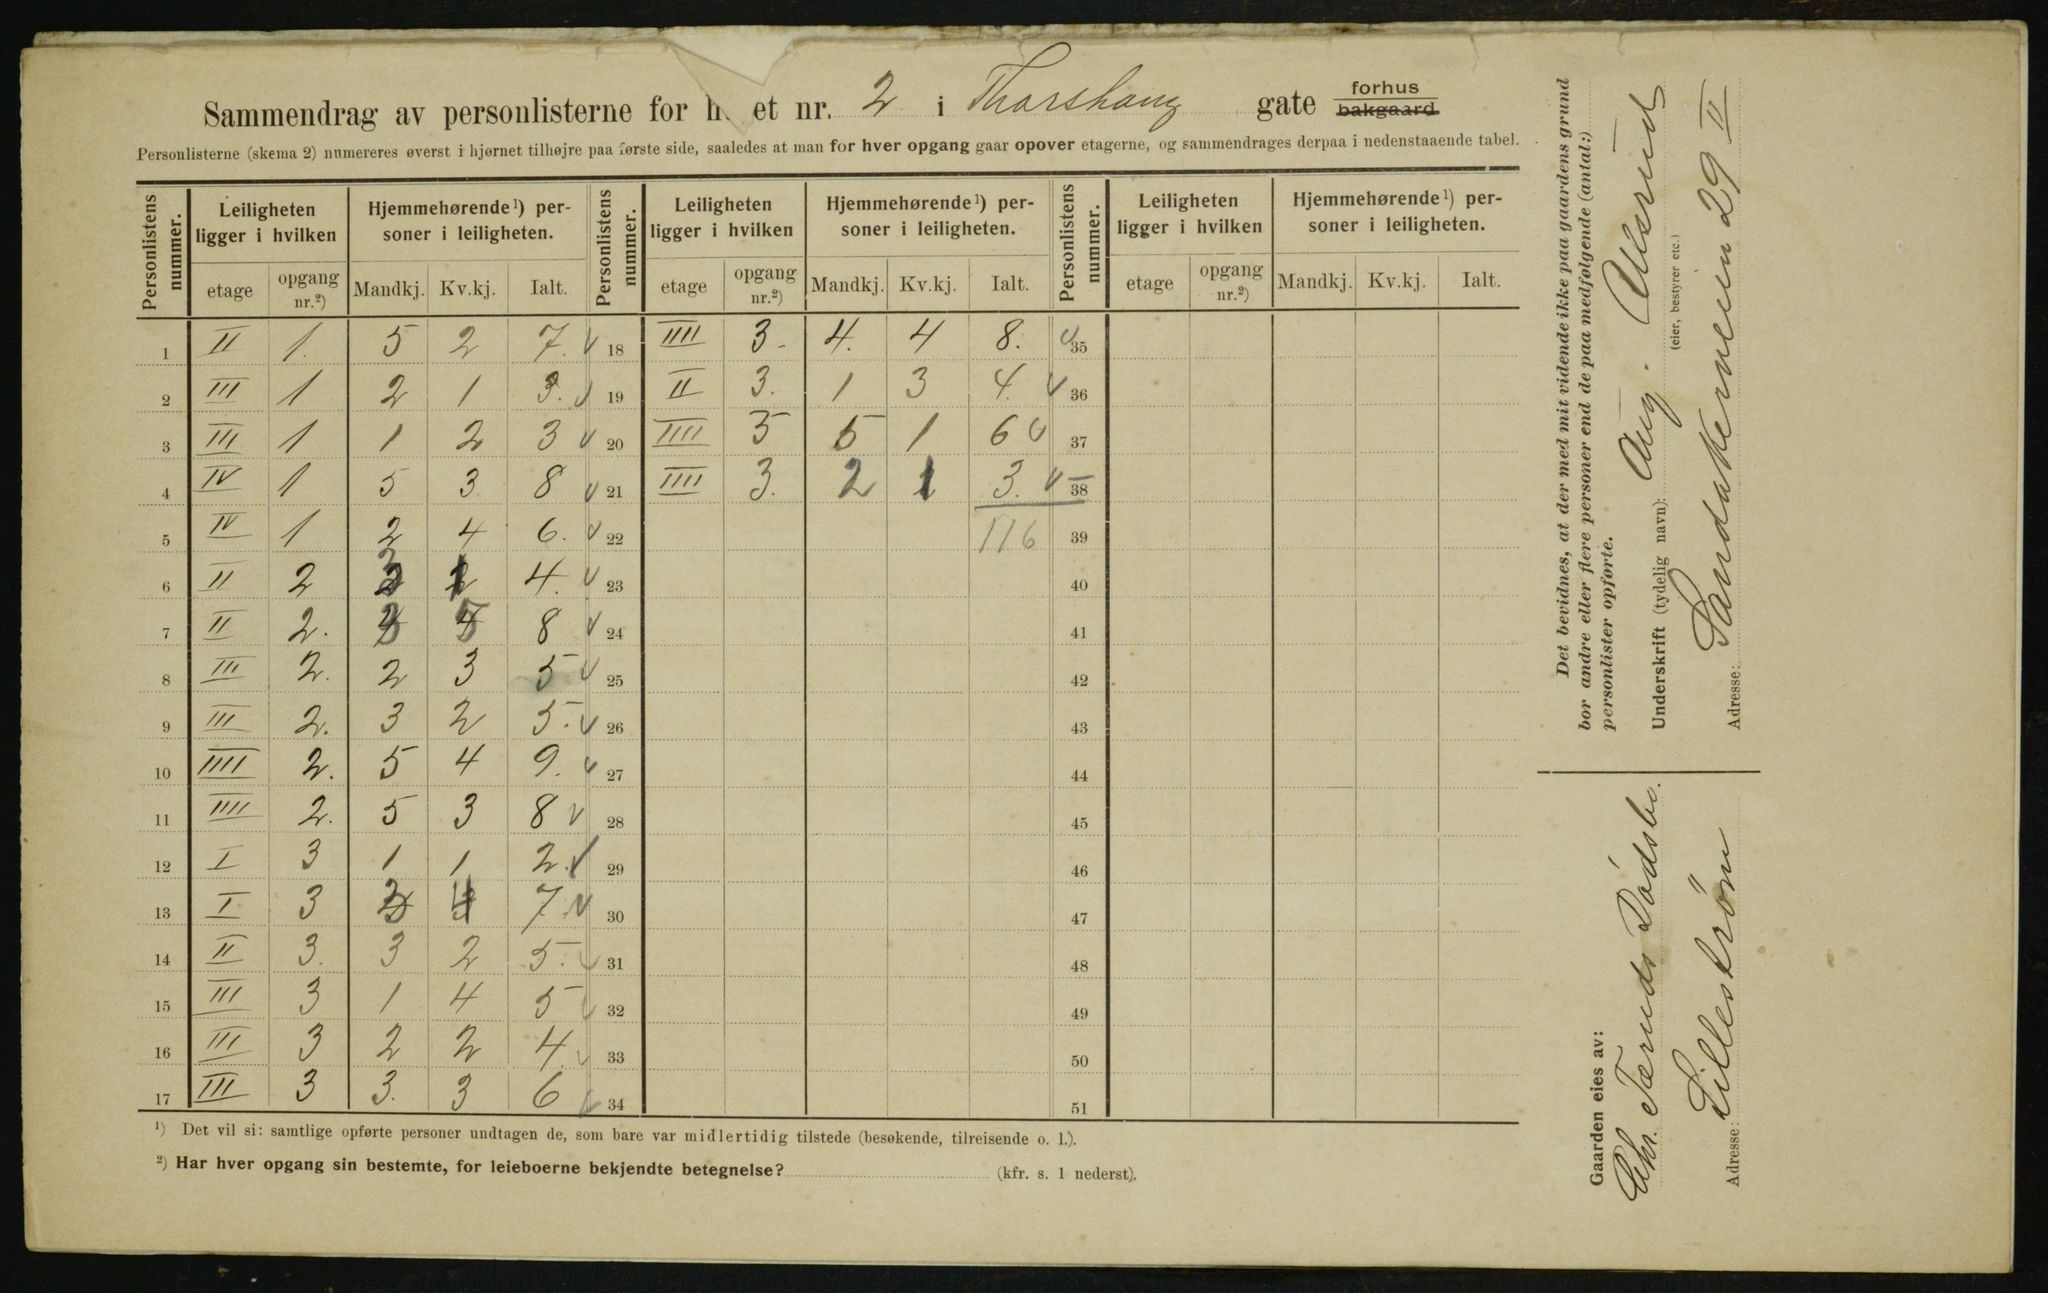 Sammendrag av personlisterne for h et nr. 2 i Thorshaug gate forhus bakgaard
Personlisterne (skema 2) numereres øverst i hjørnet tilhøjre paa første side, saaledes at man for hver opgang gaar opover etagerne, og sammendrages derpaa i nedenstaaende tabel.
Personlistens nummer. Leiligheten ligger i hvilken Hjemmehørende¹) personer i leiligheten. Personlistens nummer. Leiligheten ligger i hvilken Hjemmehørende¹) personer i leiligheten. Personlistens nummer. Leiligheten ligger i hvilken Hjemmehørende¹) personer i leiligheten.
etage opgang nr.²) Mandkj. Kv.kj. Ialt. etage opgang nr.²) Mandkj. Kv.kj. Ialt. etage opgang nr.²) Mandkj. Kv.kj. Ialt.
1 II 1. 5 2 7. 18 IIII 3. 4. 4 8. 35
2 III 1 2 1 3. 19 II 3. 1 3 4. 36
3 III 1 1 2 3 20 IIII 3 5 1 6 37
4 IV 1 5 3 8 21 IIII 3. 2 1 3. 38
5 IV 1 2 4 6. 22 116 39
6 II 2 3 1 4. 23 40
7 II 2. 3 5 8 24 41
8 III 2. 2 3 5 25 42
9 III 2. 3 2 5. 26 43
10 IIII 2. 5 4 9. 27 44
11 IIII 2. 5 3 8 28 45
12 I 3 1 1 2. 29 46
13 I 3 3 4 7. 30 47
14 II 3. 3 2 5. 31 48
15 III 3 1 4 5 32 49
16 III 3 2 2 4. 33 50
17 III 3 3. 3 6 34 51
¹) Det vil si: samtlige opførte personer undtagen de, som bare var midlertidig tilstede (besøkende, tilreisende o. l.).
²) Har hver opgang sin bestemte, for leieboerne bekjendte betegnelse? (kfr. s. 1 nederst).
Det bevidnes, at der med mit vidende ikke paa gaardens grund
bor andre eller flere personer end de paa medfølgende (antal:)
personlister opførte.
Underskrift (tydelig navn): Aug. Ulsrud
(eier, bestyrer etc.)
Adresse: Sandakerveien 29 II
Gaarden eies av:
Chr. Tæruds Dødsbo.
Adresse: Lillestrøm